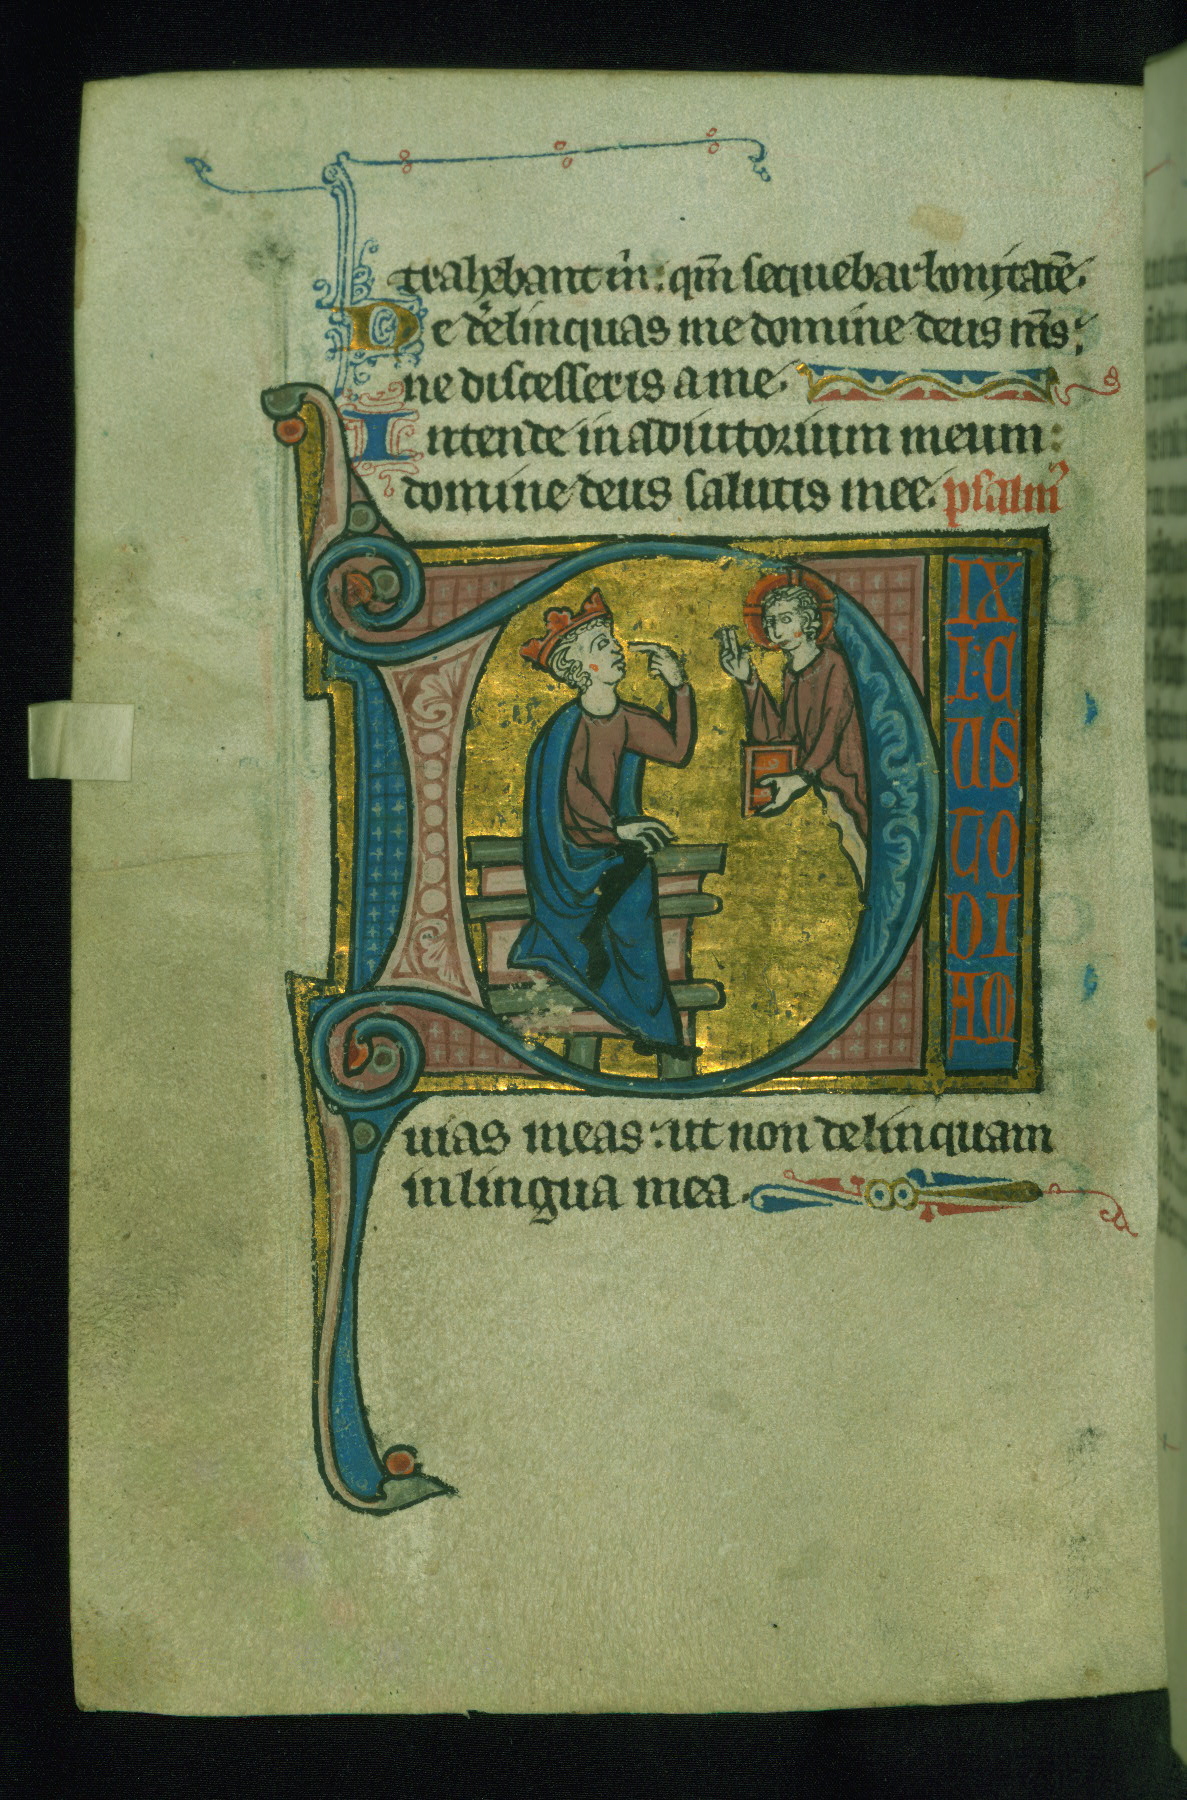 trahebant m̄: qm̄ sequebar bonitatē.
Ne delinquas me domine deus m̄s:
ne discesseris a me.
Intende in adiutorium meum:
domine deus salutis mee. psalm
DIX
I·C
US
TO
DI
AM
uias meas: ut non delinquam
in lingua mea.